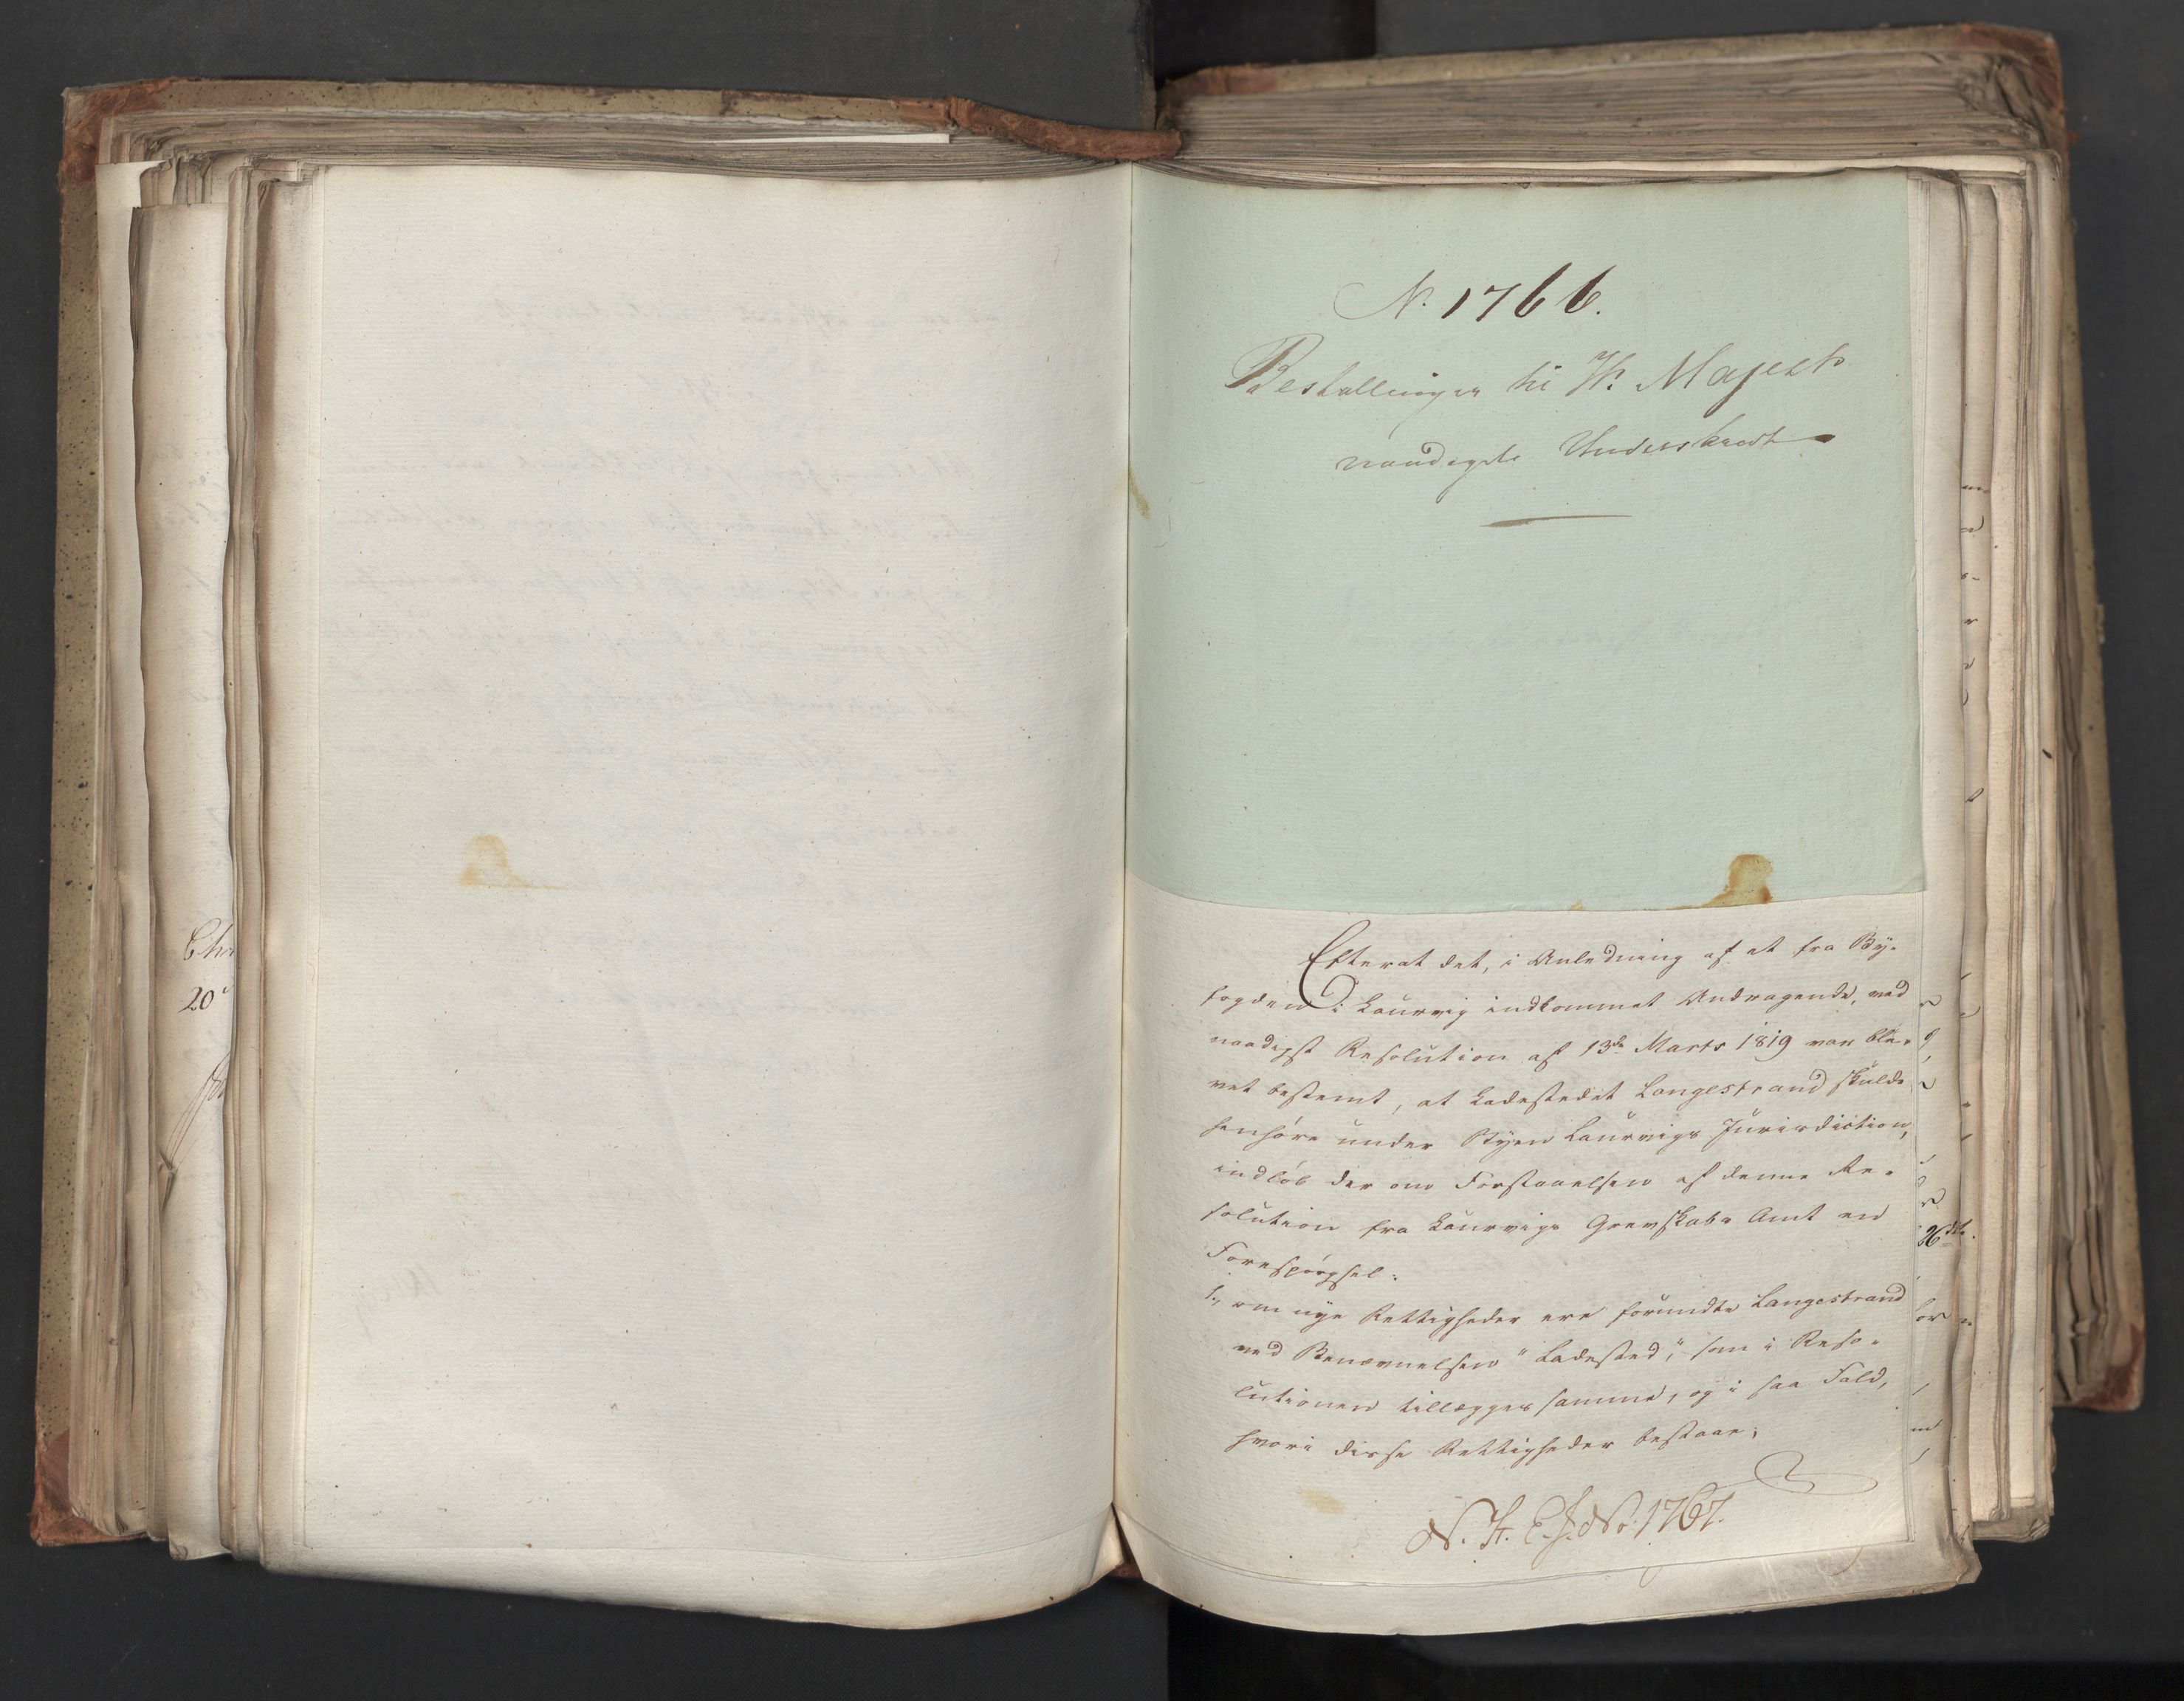 Chr
20
N. 1766.
Bestallinger til H. Majests
naadigste Underskrivt
Efterat det, i Anledning af et fra By-
fogden i Laurvig indkommet Andragende, ved
naadigst Resolution af 13de Marts 1819 var ble-
vet bestemt, at Ladestedet Langestrand skulde
henhøre under Byen Laurvigs Jurisdiction,
indløb der om Forstaaelsen af denne Re-
solution fra Laurvigs Grevskabs Amt en
Forespørgsel:
1., om nye Rettigheder ere forundte Langestrand
ved Benævnelsen "Ladested", som i Reso-
lutionen tillægges samme, og i saa Fald,
hvori disse Rettigheder bestaae;
26de
N. F. C. J. No. 1767.